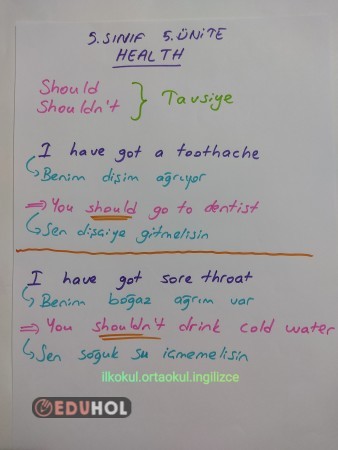 5. SINIF 5. ÜNİTE
HEALTH
Should
Shouldn't } Tavsiye
I have got a toothache
Benim dişim ağrıyor
⇒ You should go to dentist
Sen dişçiye gitmelisin
I have got sore throat
Benim boğaz ağrım var
⇒ You shouldn't drink cold water
Sen soğuk su içmemelisin
ilkokul.ortaokul.ingilizce
EDUHOL